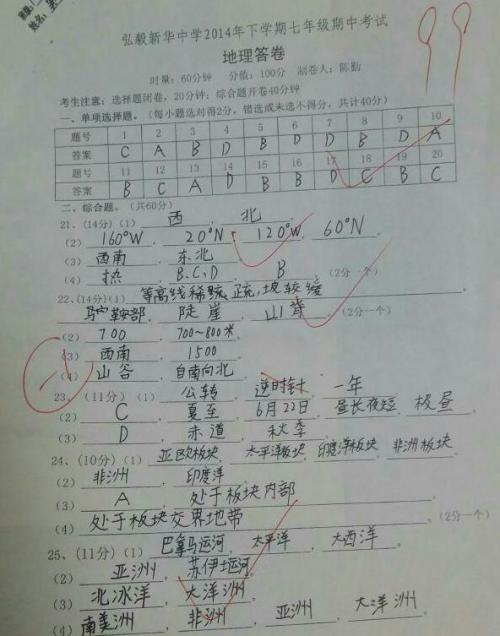 姓名
弘毅新华中学2014年下学期七年级期中考试
99
地理答卷
时量：60分钟 分值：100分 制卷人：陈勤
考生注意：选择题闭卷，20分钟；综合题开卷40分钟
一、单项选择题。（每小题选对得2分，错选或未选不得分，共计40分）
题号 1 2 3 4 5 6 7 8 9 10
答案 C A B D B D D B D A
题号 11 12 13 14 15 16 17 18 19 20
答案 B C A D B B D C B C
二、综合题。（共60分）
21、(14分)（1） 西 ， 北 ；
（2） 160°W ， 20°N ， 120°W ， 60°N 。
（3） 西南 ， 东北
（4） 热 ， B.C.D ， B （2分一个）
22、(14分)（1） 等高线稀疏，坡较缓
马鞍部 ， 陡崖 ， 山脊 。（2分一个）
（2） 700 ， 700~800米 。
（3） 西南 ， 1500 。
（4） 山谷 ， 自南向北 。
-1
23、（11分）（1） 公转 ， 逆时针 ， 一年
（2） C ， 夏至 ， 6月22日 ， 昼长夜短 ， 极昼
（3） D ， 赤道 ， 秋季
24、（10分）（1） 亚欧板块 ， 太平洋板块 ， 印度洋板块 ， 非洲板块
（2） 非洲 ， 印度洋
（3） A ， 处于板块内部
（4） 处于板块交界地带 。（2分一个）
25、（11分）（1） 巴拿马运河 ， 太平洋 ， 大西洋 。
（2） 亚洲 ， 苏伊士运河 。
（3） 北冰洋 ， 大洋洲 。
（4） 南美洲 ， 非洲 ， 亚洲 ， 大洋洲